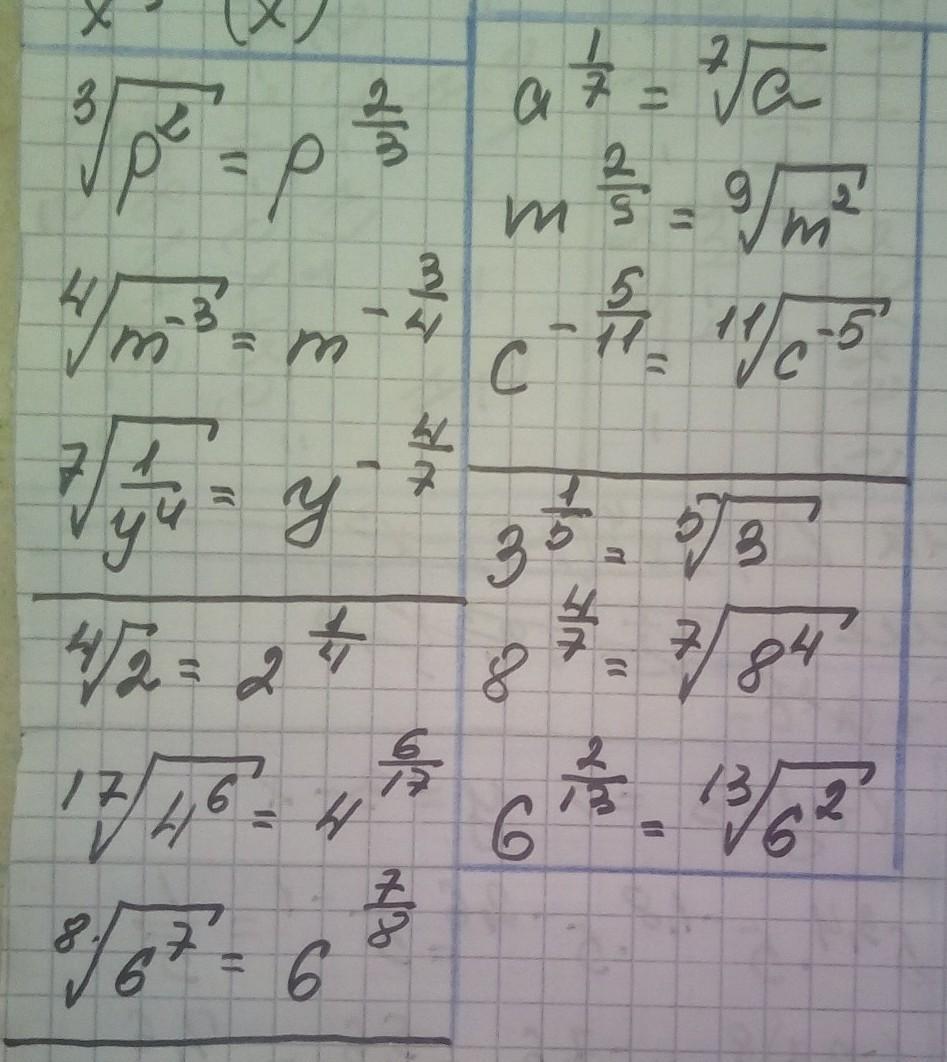 x (x)
∛(p²) = p^(2/3)
∜(m⁻³) = m^(-3/4)
⁷√(1/y⁴) = y^(-4/7)
∜2 = 2^(1/4)
¹⁷√(4⁶) = 4^(6/17)
⁸√(6⁷) = 6^(7/8)
a^(1/7) = ⁷√a
m^(2/9) = ⁹√(m²)
c^(-5/11) = ¹¹√(c⁻⁵)
3^(1/5) = ⁵√3
8^(4/7) = ⁷√(8⁴)
6^(2/13) = ¹³√(6²)